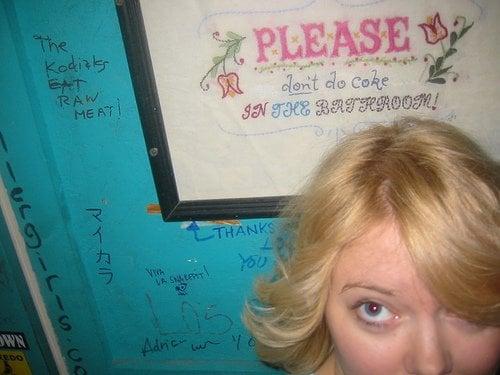 The
Kodiaks
EAT
RAW
MEAT!
PLEASE
don't do coke
IN THE BATHROOM!
マイカラ
THANKS
YOU
VIVA
LA
LDS
Adrian
girls.co
OWN
REDO